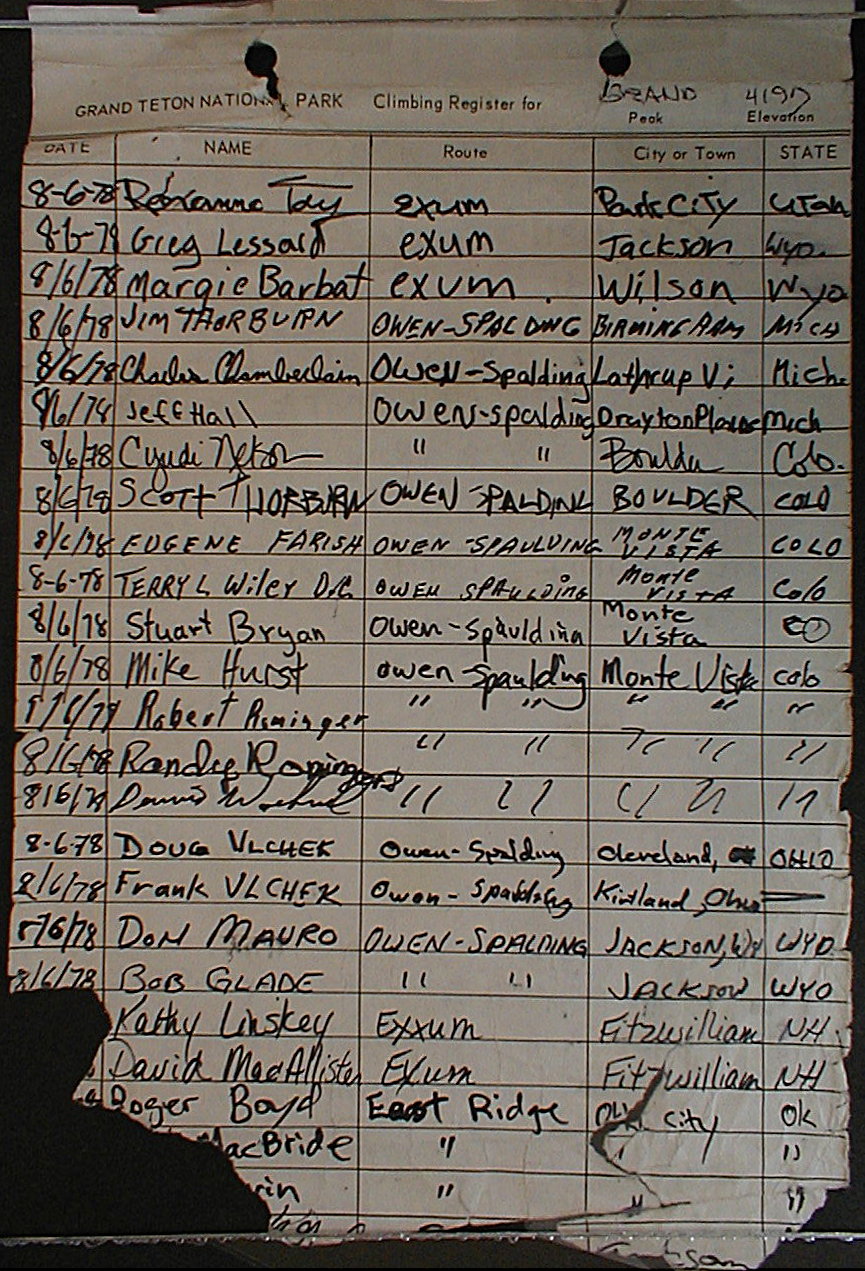 GRAND TETON NATIONAL PARK Climbing Register for GRAND Peak 4197 Elevation
DATE NAME Route City or Town STATE
8-6-78 exum Park City Utah
8-6-78 Greg Lessard exum Jackson Wyo.
8/6/78 Margie Barbat exum. Wilson Wyo
8/6/78 JIM THORBURN OWEN-SPALDING BIRMINGHAM MICH
8/6/78 Charles Chamberlain Owen-Spalding Lathrup Vi Mich.
8/6/78 Jeff Hall Owen-spalding Drayton Plains Mich
8/6/78 Cyndi " " Boulder Colo.
8/6/78 SCOTT THORBURN OWEN SPALDING BOULDER COLO
8/6/78 EUGENE FARISH OWEN-SPAULDING MONTE VISTA COLO
8-6-78 TERRY L Wiley D.C. OWEN SPAULDING Monte VISTA Colo
8/6/78 Stuart Bryan Owen-Spaulding Monte Vista CO
8/6/78 Mike Hurst Owen-Spaulding Monte Vista Colo
8/6/78 Robert " " " " "
8/6/78 Randy " " " " "
8/6/78 Dennis " " " " "
8-6-78 DOUG VLCHEK Owen-Spalding Cleveland, OHIO
8/6/78 Frank VLCHEK Owen-Spalding Kirtland, Ohio
8/6/78 DON MAURO OWEN-SPALDING JACKSON, Wy WYO
8/6/78 BOB GLADE " " JACKSON WYO
Kathy Linskey Exxum Fitzwilliam NH.
David MacAllister Exum Fitzwilliam NH
Roger Boyd East Ridge City OK
MacBride " " "
rin " " "